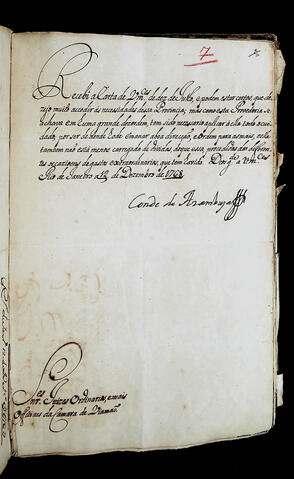 7
Recebi a Carta de Vm.ces de dez de Julho, e podem estar certos, que de-
zejo muito acodir ás necessidades dessa Provincia; mas como esta Provedoria
achava em huma grande desordem, tem sido necessario aplicar a ella todo o cui-
dado, por ser de donde hade emanar a boa direcção, e ordem para as mais, e ella
tambem não está menos carregada de dividas, do que essa, procedidas das differen-
tes occazioens de gastos extraordinarios, que tem havido. Deos g.e a V.M.ces
Rio de Janeiro a 12 de Dezembro de 1768.
Conde de Azambuja
Snr.es Juizes Ordinarios, e mais
Officiaes da Camara de Viamaõ.